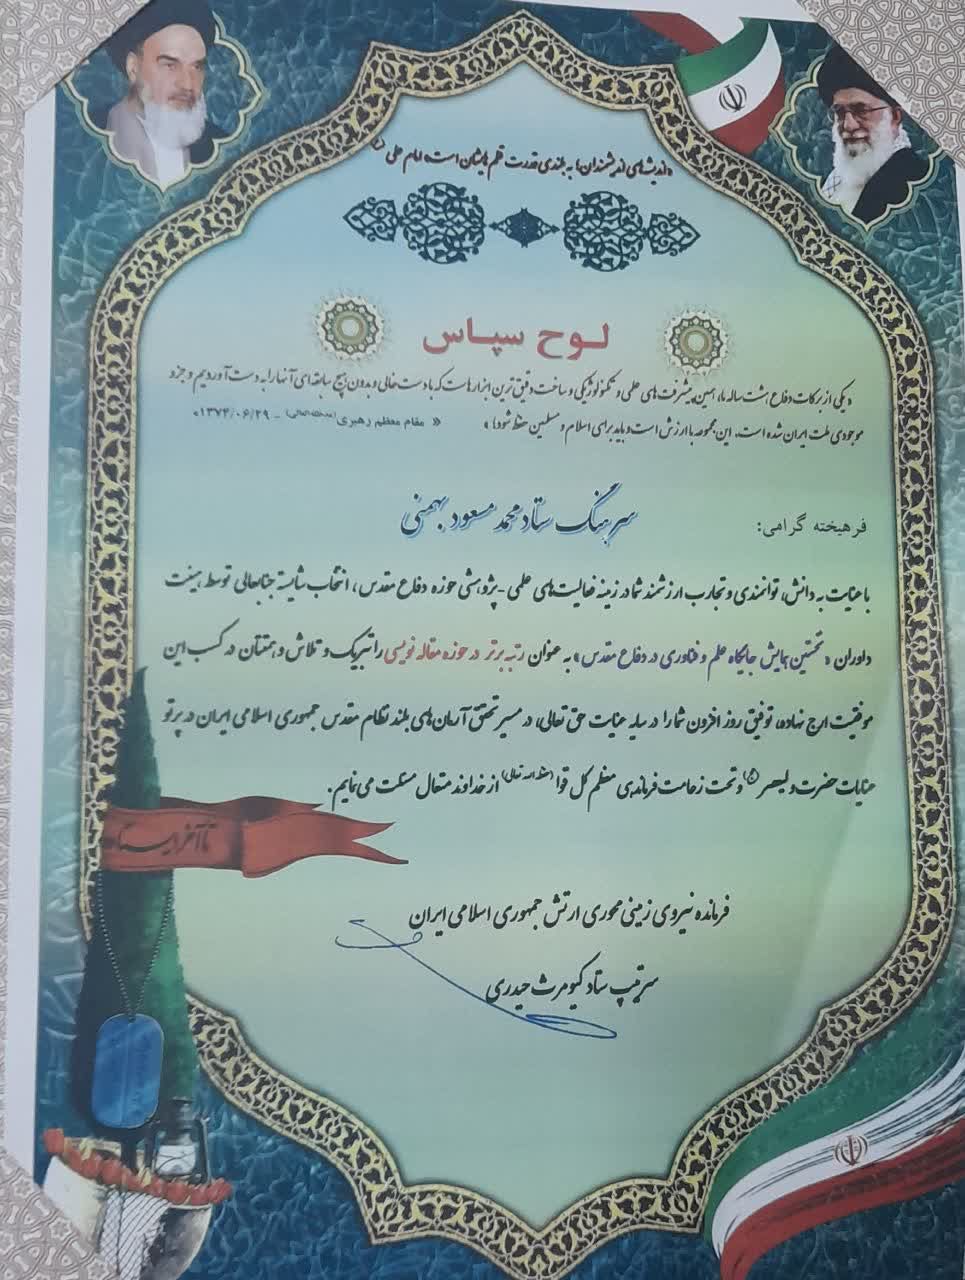 «اندیشه‌های اندیشمندان، به بلندی قدرت قلم‌هایشان است» امام علی (ع)
لوح سپاس
«یکی از برکات دفاع هشت ساله ما، همین پیشرفت‌های علمی و تکنولوژیکی و ساخت دقیق‌ترین ابزارهاست که با دست خالی و بدون هیچ سابقه‌ای آنها را به دست آوردیم و جزو
موجودی ملت ایران شده است. این مجموعه با ارزش است و باید برای اسلام و مسلمین حفظ شود.» « مقام معظم رهبری (مدظله‌العالی) - ۱۳۷۴/۰۶/۲۹»
فرهیخته گرامی: سرهنگ ستاد محمد مسعود بهمنی
با عنایت به دانش، توانمندی و تجارب ارزشمند شما در زمینه فعالیت‌های علمی-پژوهشی حوزه دفاع مقدس، انتخاب شایسته جنابعالی توسط هیئت
داوران «نخستین همایش جایگاه علم و فناوری در دفاع مقدس» به عنوان رتبه برتر در حوزه مقاله نویسی را تبریک و تلاش و همتتان در کسب این
موفقیت ارج نهاده، توفیق روز افزون شما را در سایه عنایت حق تعالی، در مسیر تحقق آرمان‌های بلند نظام مقدس جمهوری اسلامی ایران در پرتو
عنایات حضرت ولیعصر (عج) و تحت زعامت فرماندهی معظم کل قوا (حفظه الله تعالی) از خداوند متعال مسئلت می‌نمایم.
تا آخر ایستاده
فرمانده نیروی زمینی محوری ارتش جمهوری اسلامی ایران
سرتیپ ستاد کیومرث حیدری